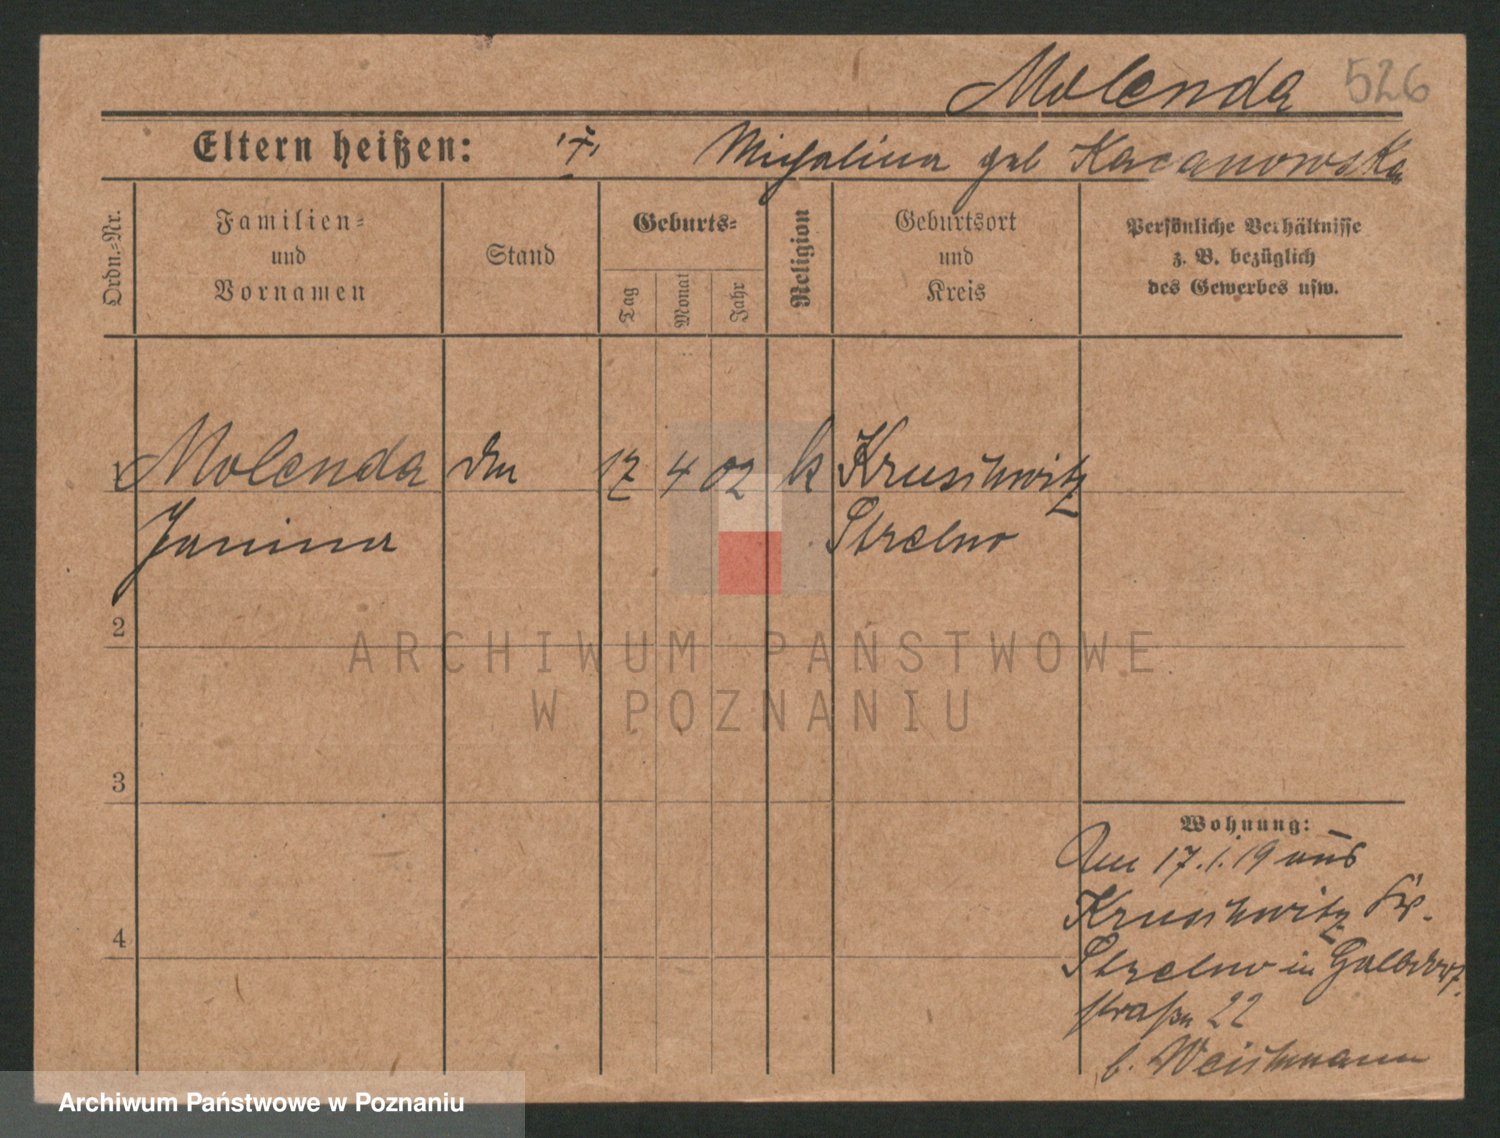 Molenda 526
Eltern heißen: "†" Michalina geb Kacanowska
Ordn.-Nr.
Familien-
und
Vornamen
Stand
Geburts-
Tag
Monat
Jahr
Religion
Geburtsort
und
Kreis
Persönliche Verhältnisse
z. B. bezüglich
des Gewerbes usw.
1 Molenda 17 4 02 k Kruschwitz
Janina Strelno
2
3
4
Wohnung:
Am 17.1.19 aus
Kruschwitz Kr.
Strelno in Gallwitz
straße 22
b. Weichmann
ARCHIWUM PAŃSTWOWE
W POZNANIU
Archiwum Państwowe w Poznaniu